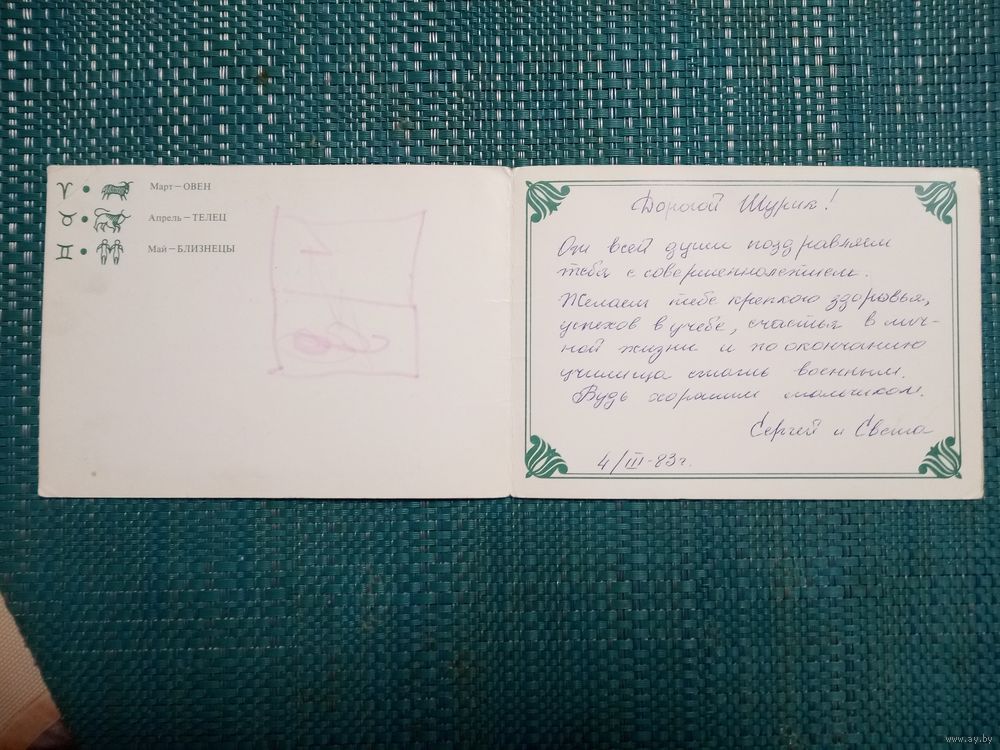 Март – ОВЕН
Апрель – ТЕЛЕЦ
Май – БЛИЗНЕЦЫ
Дорогой Шурик!
От всей души поздравляем
тебя с совершеннолетием.
Желаем тебе крепкого здоровья,
успехов в учебе, счастья в лич-
ной жизни и по окончанию
училища стать военным.
Будь хорошим мальчиком.
Сергей и Света
4/III-83г.
www.ay.by